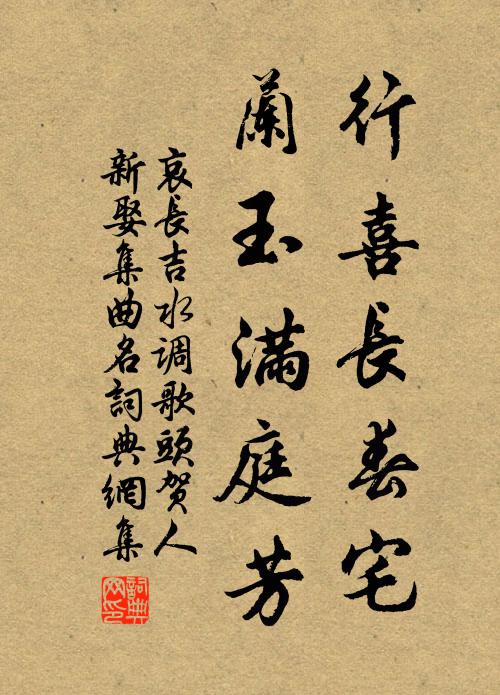 行喜長春宅
蘭玉满庭芳
哀長吉水调歌頭贺人
新娶集曲名詞典網集
詞典
网印